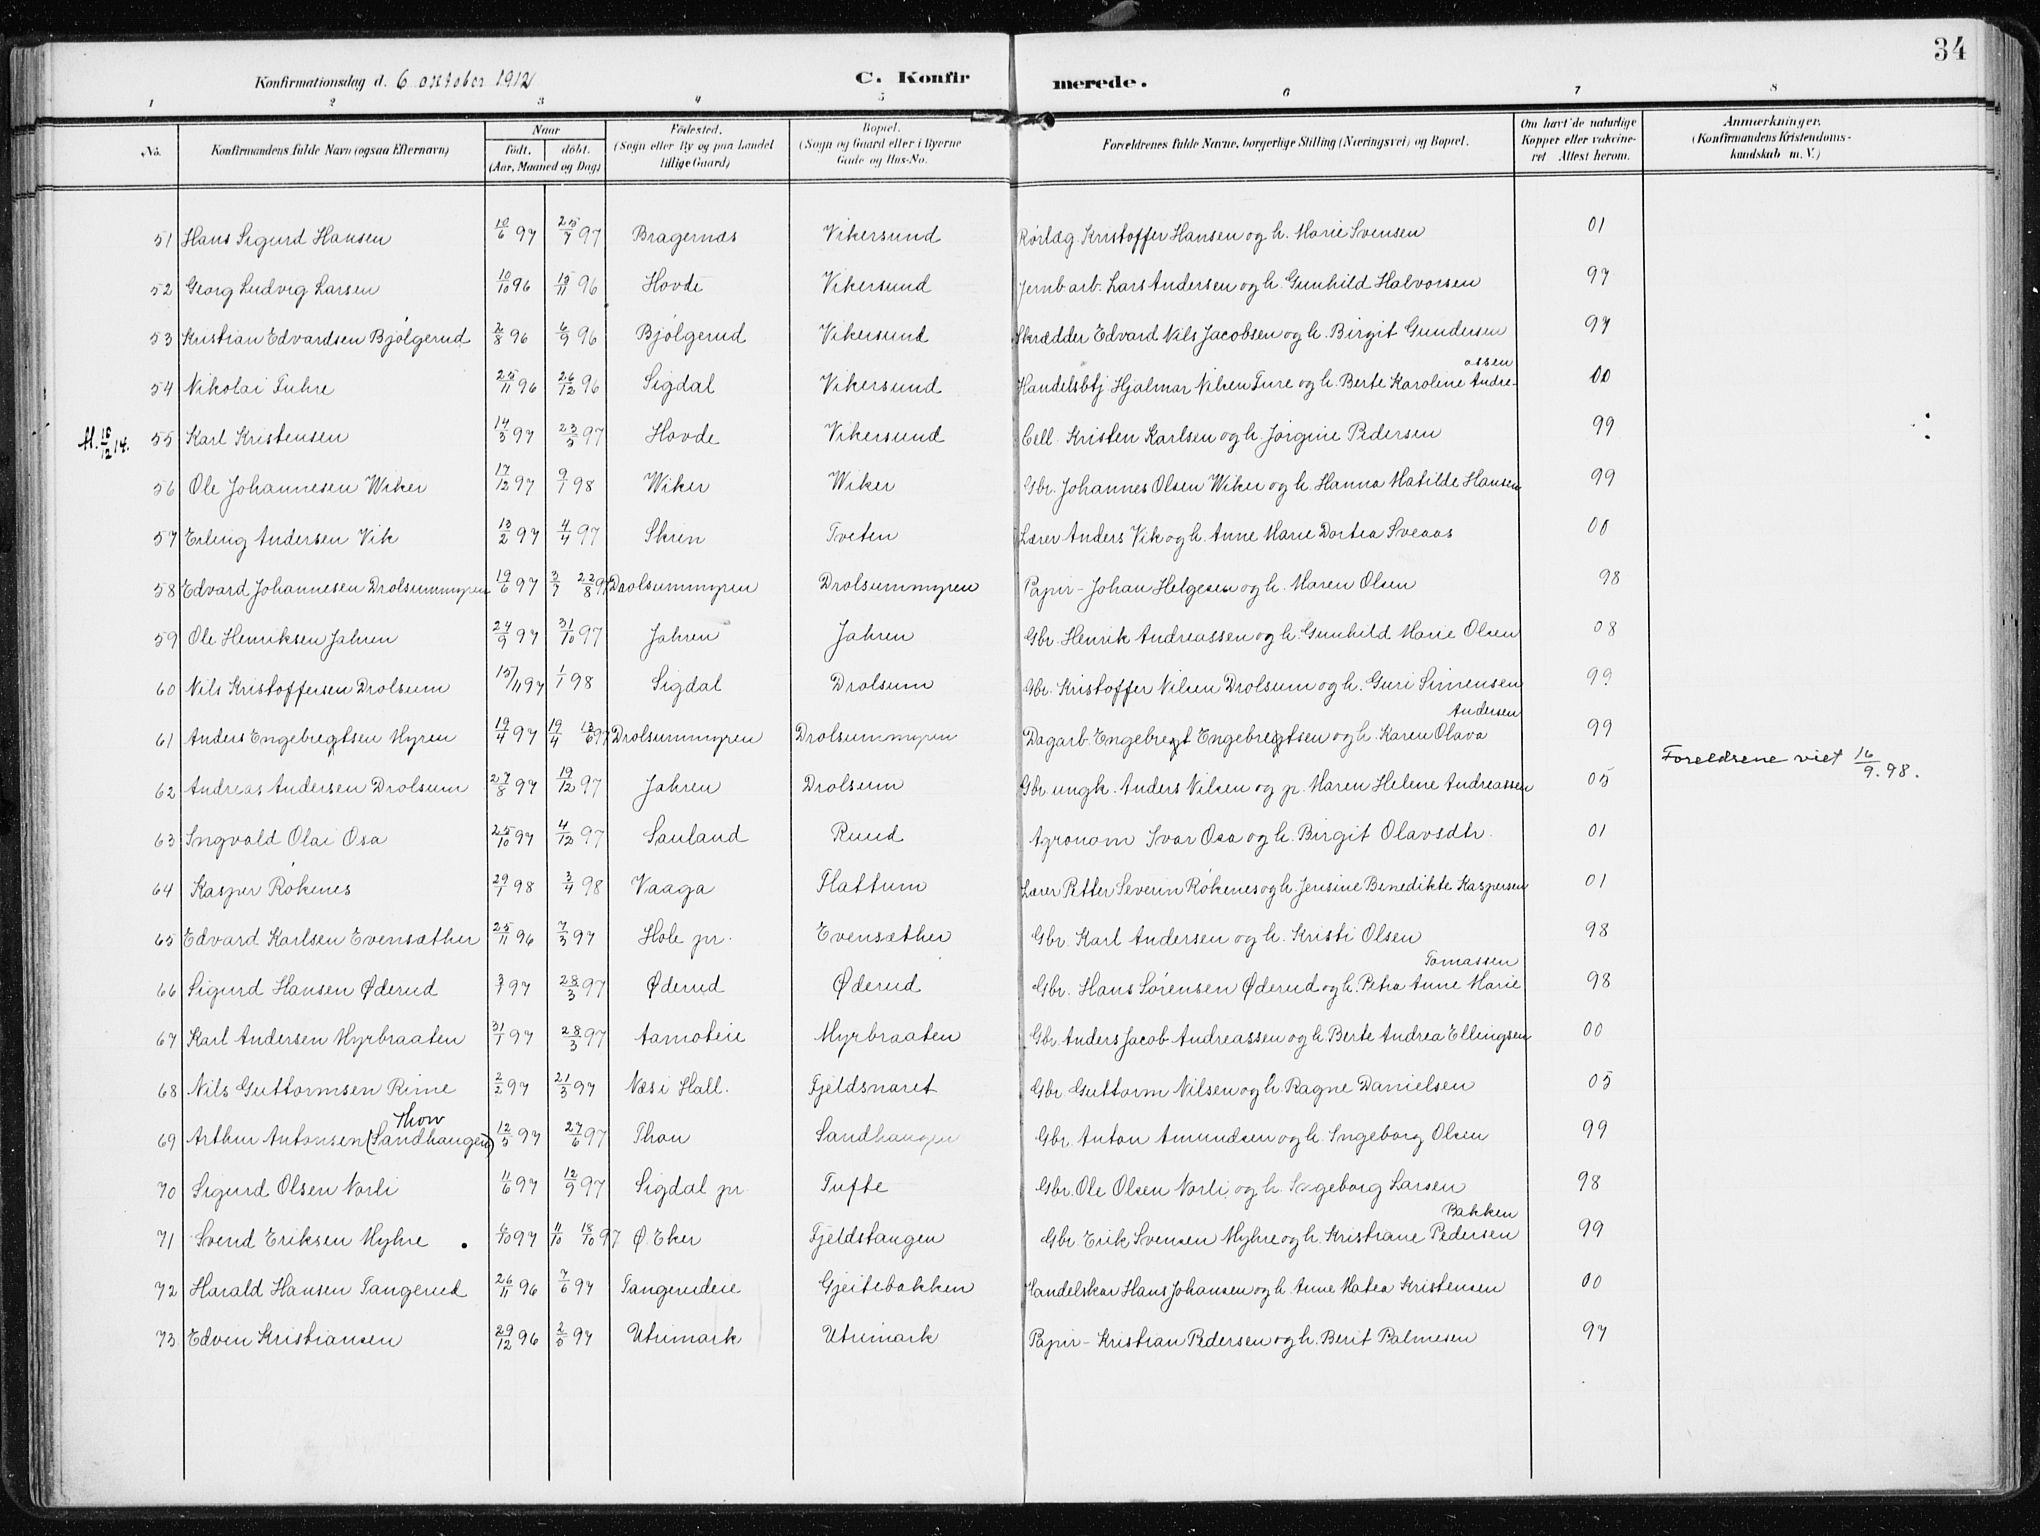 34
Konfirmationsdag d. 6 oktober 1912 C. Konfirmerede.
1 2 3 4 5 6 7 8
No. Konfirmandens fulde Navn (ogsaa Efternavn) Naar født. døbt. (Aar, Maaned og Dag) Fødested. (Sogn eller By og paa Landet tillige Gaard) Bopæl. (Sogn og Gaard eller i Byerne Gade og Hus-No. Forældrenes fulde Navne, borgerlige Stilling (Næringsvei) og Bopæl. Om havt de naturlige Kopper eller vakcineret Attest herom. Anmærkninger. (Konfirmandens Kristendomskundskab m. V.)
51 Hans Sigurd Hansen 10/6 97 25/7 97 Bragernæs Vikersund Rørlæg Kristoffer Hansen og h. Marie Svensen 01
52 Georg Ludvig Larsen 10/10 96 15/11 96 Hovde Vikersund Jernb arb. Lars Andersen og h. Gunhild Halvorsen 97
53 Kristian Edvardsen Bjølgerud 2/8 96 6/9 96 Bjølgerud Vikersund Skrædder Edvard Nils Jacobsen og h. Birgit Gundersen 97
54 Nikolai Fuhre 25/11 96 26/12 96 Sigdal Vikersund Handelsbtj Hjalmar Nilsen Fure og h. Berte Karoline Andreassen 00
M. 18/12 14. 55 Karl Kristensen 14/3 97 23/5 97 Hovde Vikersund Cell. Kristen Karlsen og h. Jørgine Pedersen 99
56 Ole Johannesen Wiker 17/12 97 9/1 98 Wiker Wiker Gbr. Johannes Olsen Wiker og h. Hanna Matilde Hansen 99
57 Erling Andersen Vik 13/2 97 4/4 97 Skien Tveten Lærer Anders Vik og h. Anne Marie Dortea Sveaas 00
58 Edvard Johannesen Drolsummyren 19/6 97 3/7 22/8 97 Drolsummyren Drolsummyren Papir- Johan Helgesen og h. Maren Olsen 98
59 Ole Henriksen Jahren 24/9 97 31/10 97 Jahren Jahren Gbr. Henrik Andreassen og h. Gunhild Marie Olsen 08
60 Nils Kristoffersen Drolsum 15/11 97 1/1 98 Sigdal Drolsum Gbr. Kristoffer Nilsen Drolsum og h. Guri Simensen 99
61 Anders Engebregtsen Myren 19/4 97 19/4 13/6 97 Drolsummyren Drolsummyren Dagarb. Engebregt Engebregtsen og h. Karen Olava Andersen 99
62 Andreas Andersen Drolsum 27/8 97 19/12 97 Jahren Drolsum Gbr. ungk. Anders Nilsen og p. Maren Helene Andreassen 05 Foreldrene viet 16/9. 98.
63 Ingvald Olai Osa 25/10 97 4/12 97 Sauland Ruud Agronom Ivar Osa og h. Birgit Olavsdtr. 01
64 Kasper Røkenes 29/1 98 3/4 98 Vaaga Flattum Lærer Petter Severin Røkenes og h. Jensine Benedikte Kaspersen 01
65 Edvard Karlsen Evensæther 25/11 96 7/3 97 Hole pr. Evensæther Gbr. Karl Andersen og h. Kristi Olsen 98
66 Sigurd Hansen Øderud 3/1 97 28/3 97 Øderud Øderud Gbr. Hans Sørensen Øderud og h. Petra Anne Marie Tomassen 98
67 Karl Andersen Myrbraaten 31/1 97 28/3 97 Aamoteie Myrbraaten Gbr. Anders Jacob Andreassen og h. Berte Andrea Ellingsen 00
68 Nils Guttormsen Rime 2/2 97 21/3 97 Næs i Hall. Fjeldsnaret Gbr. Guttorm Nilsen og h. Ragne Danielsen 05
69 Arthur Antonsen (Sandhaugen) Thon 12/5 97 27/6 97 Thon Sandhaugen Gbr. Anton Amundsen og h. Ingeborg Olsen 99
70 Sigurd Olsen Norli 11/6 97 12/9 97 Sigdal pr. Tufte Gbr. Ole Olsen Norli og h. Ingeborg Larsen 98
71 Svend Eriksen Myhre 6/10 97 11/10 18/10 97 Ø. Eker Fjeldstangen Gbr. Erik Svensen Myhre og h. Kristiane Pedersen Bakken 99
72 Harald Hansen Tangerud 26/11 96 7/6 97 Tangerudeie Gjeitebakken Handelskar Hans Johansen og h. Anne Matea Kristensen 00
73 Edvin Kristiansen 29/12 96 2/5 97 Utrimark Utrimark Papir- Kristian Pedersen og h. Berit Palmesen 97